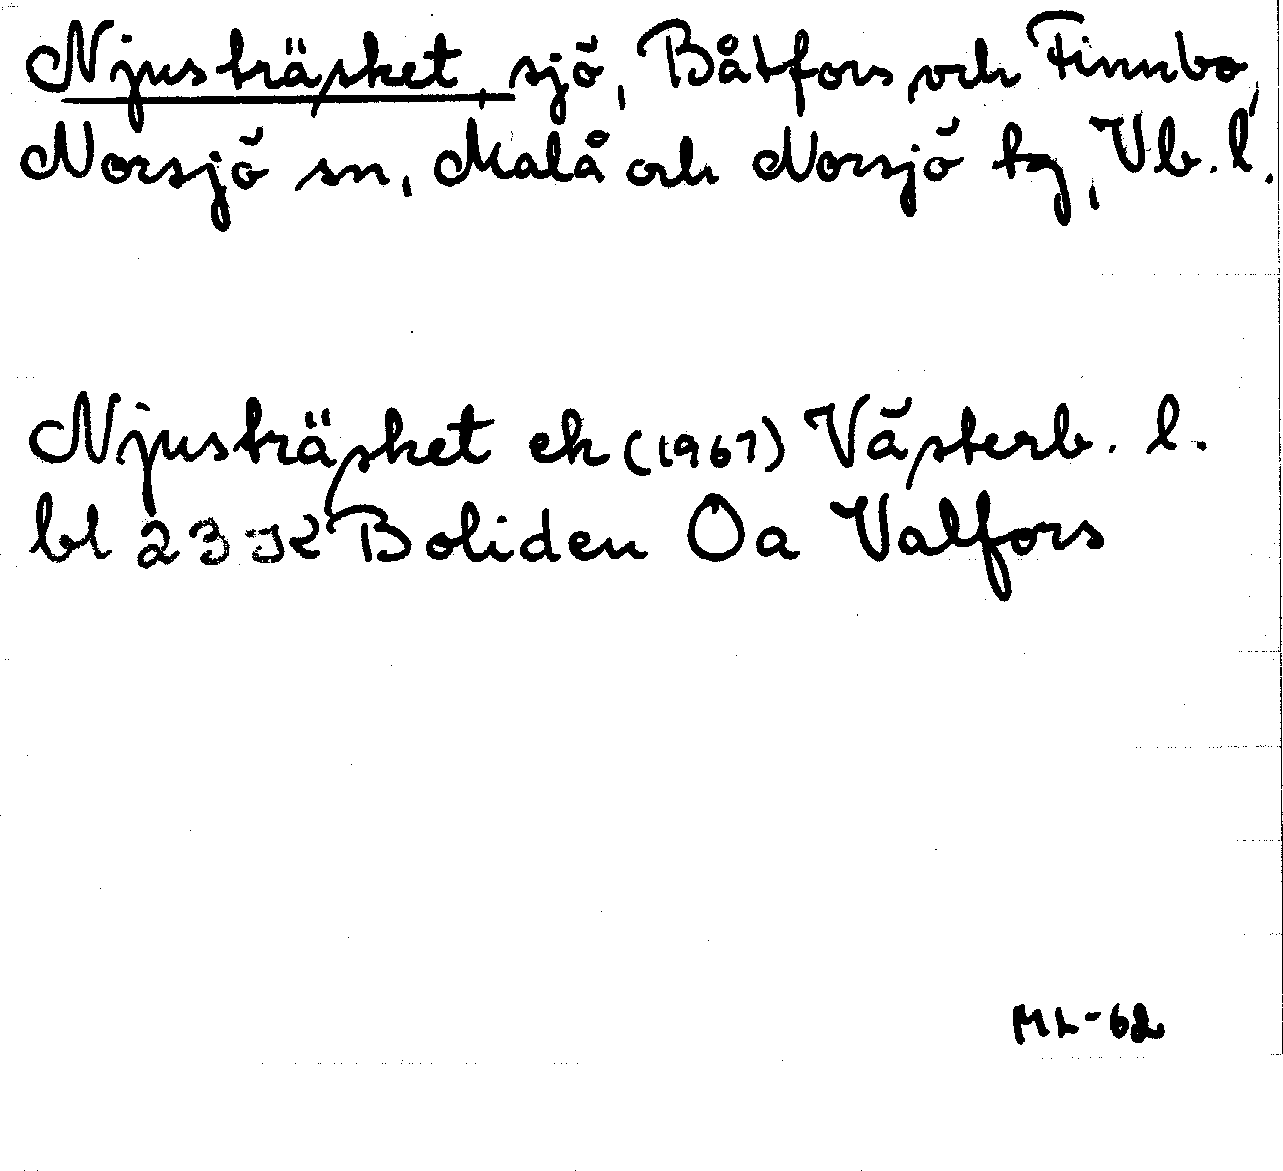 Njusträsket, sjö, Båtfors och Finnbo,
Norsjö sn, Malå och Norsjö tg, Vb. l.
Njusträsket ek (1961) Västerb. l.
bl 23 JK Boliden Oa Valfors
ML-62